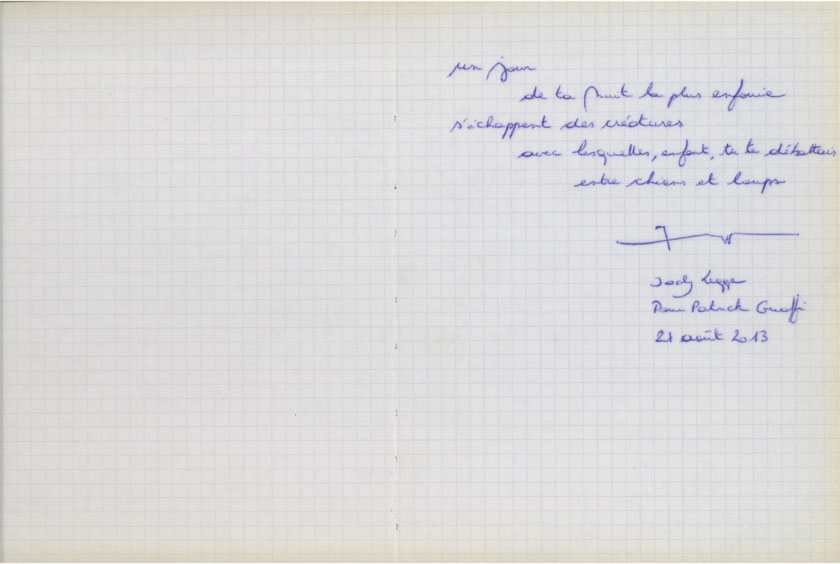 un jour
de ta nuit la plus enfouie
s'échappent des créatures
avec lesquelles, enfant, tu te débattais
entre chiens et loups
Jody Legge
Pour Patrick
21 août 2013